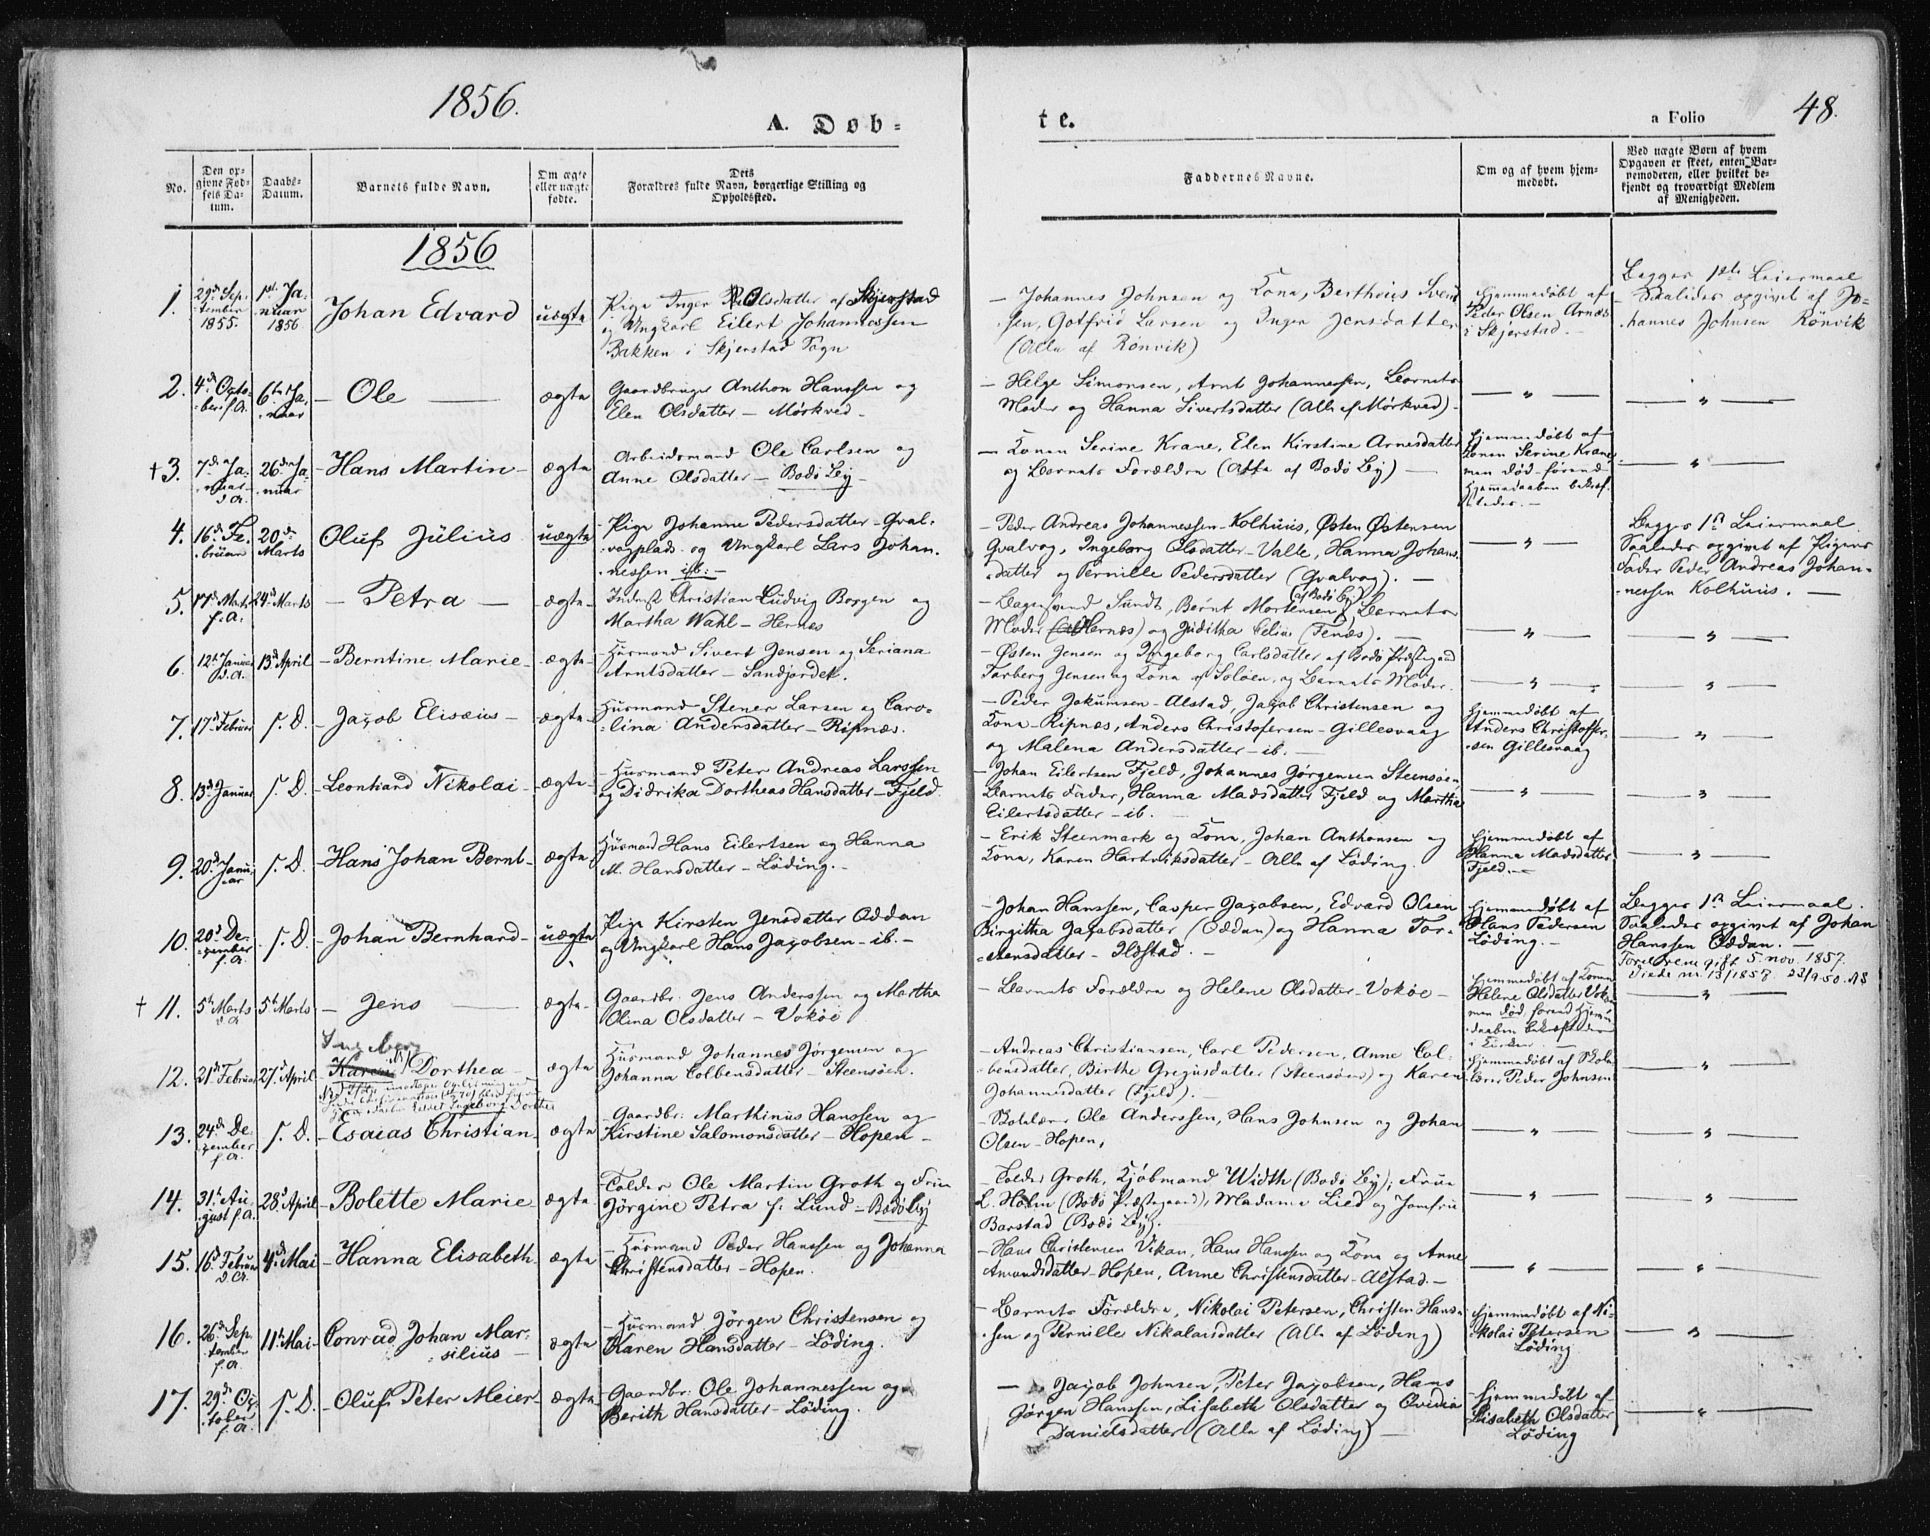 1856.
A. Døb=
te.
a Folio 48.
No.
Den op-
givne Fød-
sels Da-
tum.
Daabs-
Datum.
Barnets fulde Navn.
Om ægte
eller uægte
fødte.
Dets
Forældres fulde Navn, borgerlige Stilling og
Opholdssted.
Faddernes Navne.
Om og af hvem hjem-
medøbt.
Ved uægte Børn af hvem
Opgaven er skeet, enten Bar-
nemoderen, eller hvilket be-
kjendt og troværdigt Medlem
af Menigheden.
1856
1.
29de Sep-
tember
1855.
1ste Ja-
nuar
1856
Johan Edvard
uægte
Pige Inger Olsdatter af Skjerstad
og Ungkarl Eilert Johannessen
Bakken i Skjerstad Sogn
- Johannes Johnsen og Kone, Bertheus Svend-
sen, Gotfrid Larsen og Inger Jensdatter
(Alle af Rönvik)
Hjemmedøbt af
Peder Olsen Arnæs
i Skjerstad.-
Begges 1ste Leiermaal
Saaledes opgivet af Jo-
hannes Johnsen Rönvik
2.
4de Octo-
ber f.A.
6te Ja-
nuar
- Ole -
ægte
Gaardbruger Anthon Hanssen og
Elen Olsdatter - Mørkved -
- Helge Simonsen, Arnt Johannessen, Barnets
Moder og Hanna Sivertsdatter (Alle af Mørkved) -
- " -
- " -
†3.
7de Ja-
nuar
d.A.
26de Ja-
nuar
- Hans Martin -
ægte
- Arbeidsmand Ole Carlsen og
Anne Olsdatter - Bodö By -
- Konen Serine Krane, Elen Kirstine Arnesdatter
og Barnets Forældre (Alle af Bodö By) -
Hjemmedøbt af
Konen Serine Krane
men død förend
Hjemmedaaben bekræf-
tedes. -
- " -
4.
16de Fe-
bruar
20de
Marts
Oluf Julius
uægte
- Pige Johanne Pedersdatter - Qval-
vogplads og Ungkarl Lars Johan-
nessen ib: -
- Peder Andreas Johannessen - Kolhuus, Østen Østensen
Qvalvog, Ingeborg Olsdatter - Valle, Hanna Johans-
datter og Pernille Pedersdatter (Qvalvog). -
- " -
Begges 1ste Leiermaal.
Saaledes opgivet af Pigens
Fader Peder Andreas Johan-
nessen Kolhuus. -
5.
f.A.
24de Marts
- Petra -
ægte
Christian Ludvig Borgen og
Martha Wahl - Hernes
Sundt, Bernt Mortensen (af Bodö By) Barnets
Moder (Hernæs) og Juditha Celius (Fenæs). -
- " -
- " -
6.
12te Januar
d.A.
13de April
- Berntine Marie -
ægte
- Huusmand Sivert Jensen og Seriana
Arntsdatter - Sandjordet.
- Østen Jensen og Ingeborg Carlsdatter af Bodö Præstegaard
Torberg Jensen og Kone af Soløen, og Barnets Moder.
- " -
- " -
7.
17de Februar
s. D.
- Jacob Elisæus -
ægte
- Huusmand Stener Larsen og Caro-
lina Andersdatter - Ripnæs.
- Peder Jokumsen - Alstad, Jacob Christensen og
Kone - Ripnæs, Anders Christofersen - Gillesvaag
og Malena Andersdatter - ib. -
Hjemmedøbt af
Anders Christoffer-
sen Gillesvaag
- " -
8.
13de Januar
s. D.
- Leonhard Nikolai -
ægte
- Huusmand Peter Andreas Larssen
og Didrika Dortheas Hansdatter - Fjeld.
- Johan Eilertsen Fjeld, Johannes Jørgensen Steensöen,
Barnets Fader, Hanna Madsdatter Fjeld og Martha
Eilertsdatter - ib. -
- " -
- " -
9.
20de Janu-
ar
s. D.
- Hans Johan Bernt -
ægte
Huusmand Hans Eilertsen og Hanna
M. Hansdatter - Löding. -
- Erik Steenmark og Kone, Johan Anthonsen og
Kone, Karen Hartviksdatter - Alle af Löding.
Hjemmedøbt af
Hanna Madsdatter
Fjeld. -
- " -
10.
20de De-
cember
f.A.
s. D.
- Johan Bernhard -
uægte
Pige Kirsten Jensdatter Oddan
og Ungkarl Hans Jacobsen - ib. -
- Johan Hanssen, Casper Jacobsen, Edvard Olsen
Birgitha Jacobsdatter (Oddan) og Hanna Tor-
stensdatter - Ilstad. -
Hjemmedøbt af
Hans Pedersen
Löding. -
Begges 1ste Leiermaal.
Saaledes opgivet af Johan
Hanssen Oddan. -
Foreldrene gift 5. nov. 1857.
Viede nr. 13/1857. 23/9.50. AS
† 11.
5te Marts
d.A.
5te Marts
- Jens -
ægte
- Gaardbr. Jens Anderssen og Martha
Olina Olsdatter - Vokøe
- Barnets Forældre og Helene Olsdatter - Vokøe -
Hjemmedøbt af Konen
Helene Olsdatter Vokøe
men død, forend Hjem-
daaben bekræftedes
i Kirken. -
- " -
12.
21de Februar
27de April
Ingeborg
Karen Dorthea -
ægte
Huusmand Johannes Jørgensen og
Johanna Colbensdatter - Steensöen.
- Andreas Christiansen, Carl Pedersen, Anne Col-
bensdatter, Birthe Gregusdatter (Steensöen) og Karen
Johannesdatter (Fjeld). -
Hjemmedøbt af Skole-
lærer Peder Johnsen
- " -
13.
24de De-
cember
f.A.
s. D.
- Esaias Christian
ægte
- Gaardbr: Markinus Hanssen og
Kirstine Salomonsdatter - Hopen -
Ole Anderssen, Hans Johnsen og Johan
Olsen - Hopen,
- " -
- " -
14.
31te Au-
gust f.A.
28de April
- Bolette Marie
ægte
- Tolder Ole Martin Groth og Frue
Jörgine Petra f. Lund - Bodö By
- Tolder Groth, Kjöbmand Width (Bodö By); Frue
L. Holm (Bodö Præstegaard), Madame Lied og Jomfru
Barstad (Bodö By).
- " -
- " -
15.
16de Februar
d.A.
4de Mai
- Hanna Elisabeth.
ægte
- Huusmand Peder Hanssen og Johanna
Christensdatter - Hopen.
- Hans Christensen Vikan, Hans Hanssen og Kone og Anne
Amundsdatter - Hopen, Anne Christensdatter - Alstad. -
- " -
- " -
16.
26de Sep-
tember
f.A.
11te Mai
Conrad Johan Mar-
silius -
ægte
- Huusmand Jørgen Christensen og
Karen Hansdatter - Löding.
- Barnets Forældre, Nikolai Petersen, Christen Hans-
sen og Pernille Nikolaisdatter (Alle af Löding)
Hjemmedøbt af Ni-
kolai Petersen
Löding
- " -
17.
29de Oc-
tober
f.A.
s. D.
- Oluf Peter Meier -
ægte
- Gaardbr: Ole Johannessen og
Berith Hansdatter - Löding.
- Jacob Johnsen, Peter Jacobsen, Hans
Jörgen Hanssen, Lisabeth Olsdatter og Ovidia
Danielsdatter (Alle af Löding) -
Hjemmedøbt af
Lisabeth Olsdatter
Löding
- " -